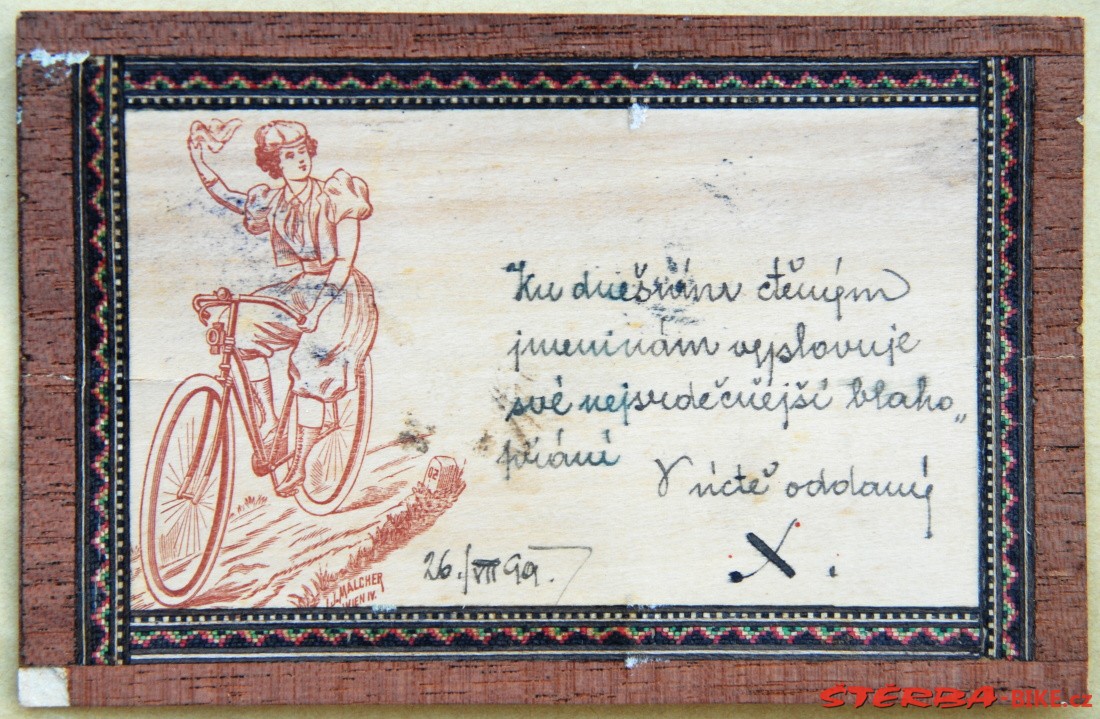 Ku dnešním ctěným
jmeninám vyslovuje
své nejsrdečnější blaho„
přání
V úctě oddaný
X.
26./VII 99.
J. MALCHER
WIEN IV.
ŠTĚRBA-BIKE.cz